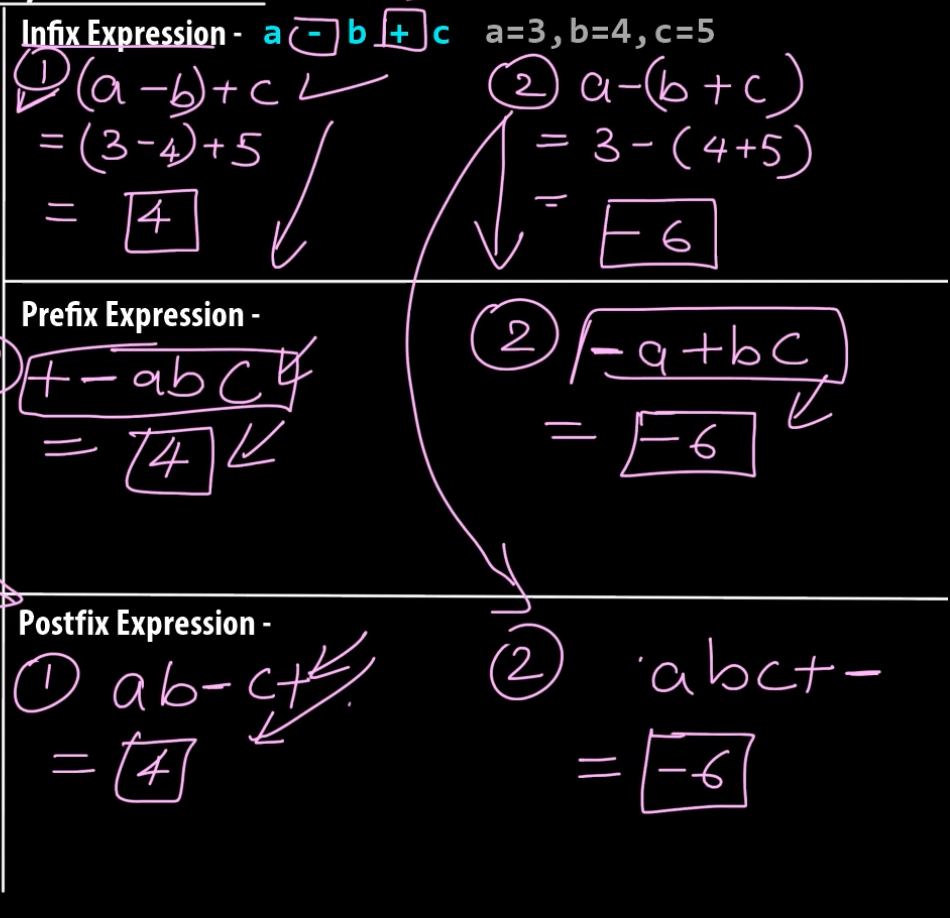 Infix Expression - a - b + c a=3, b=4, c=5
① (a-b)+c ② a-(b+c)
= (3-4)+5 = 3-(4+5)
= 4 = -6
Prefix Expression -
+-abc ② -a+bc
= 4 = -6
Postfix Expression -
① ab-c+ ② abc+-
= 4 = -6